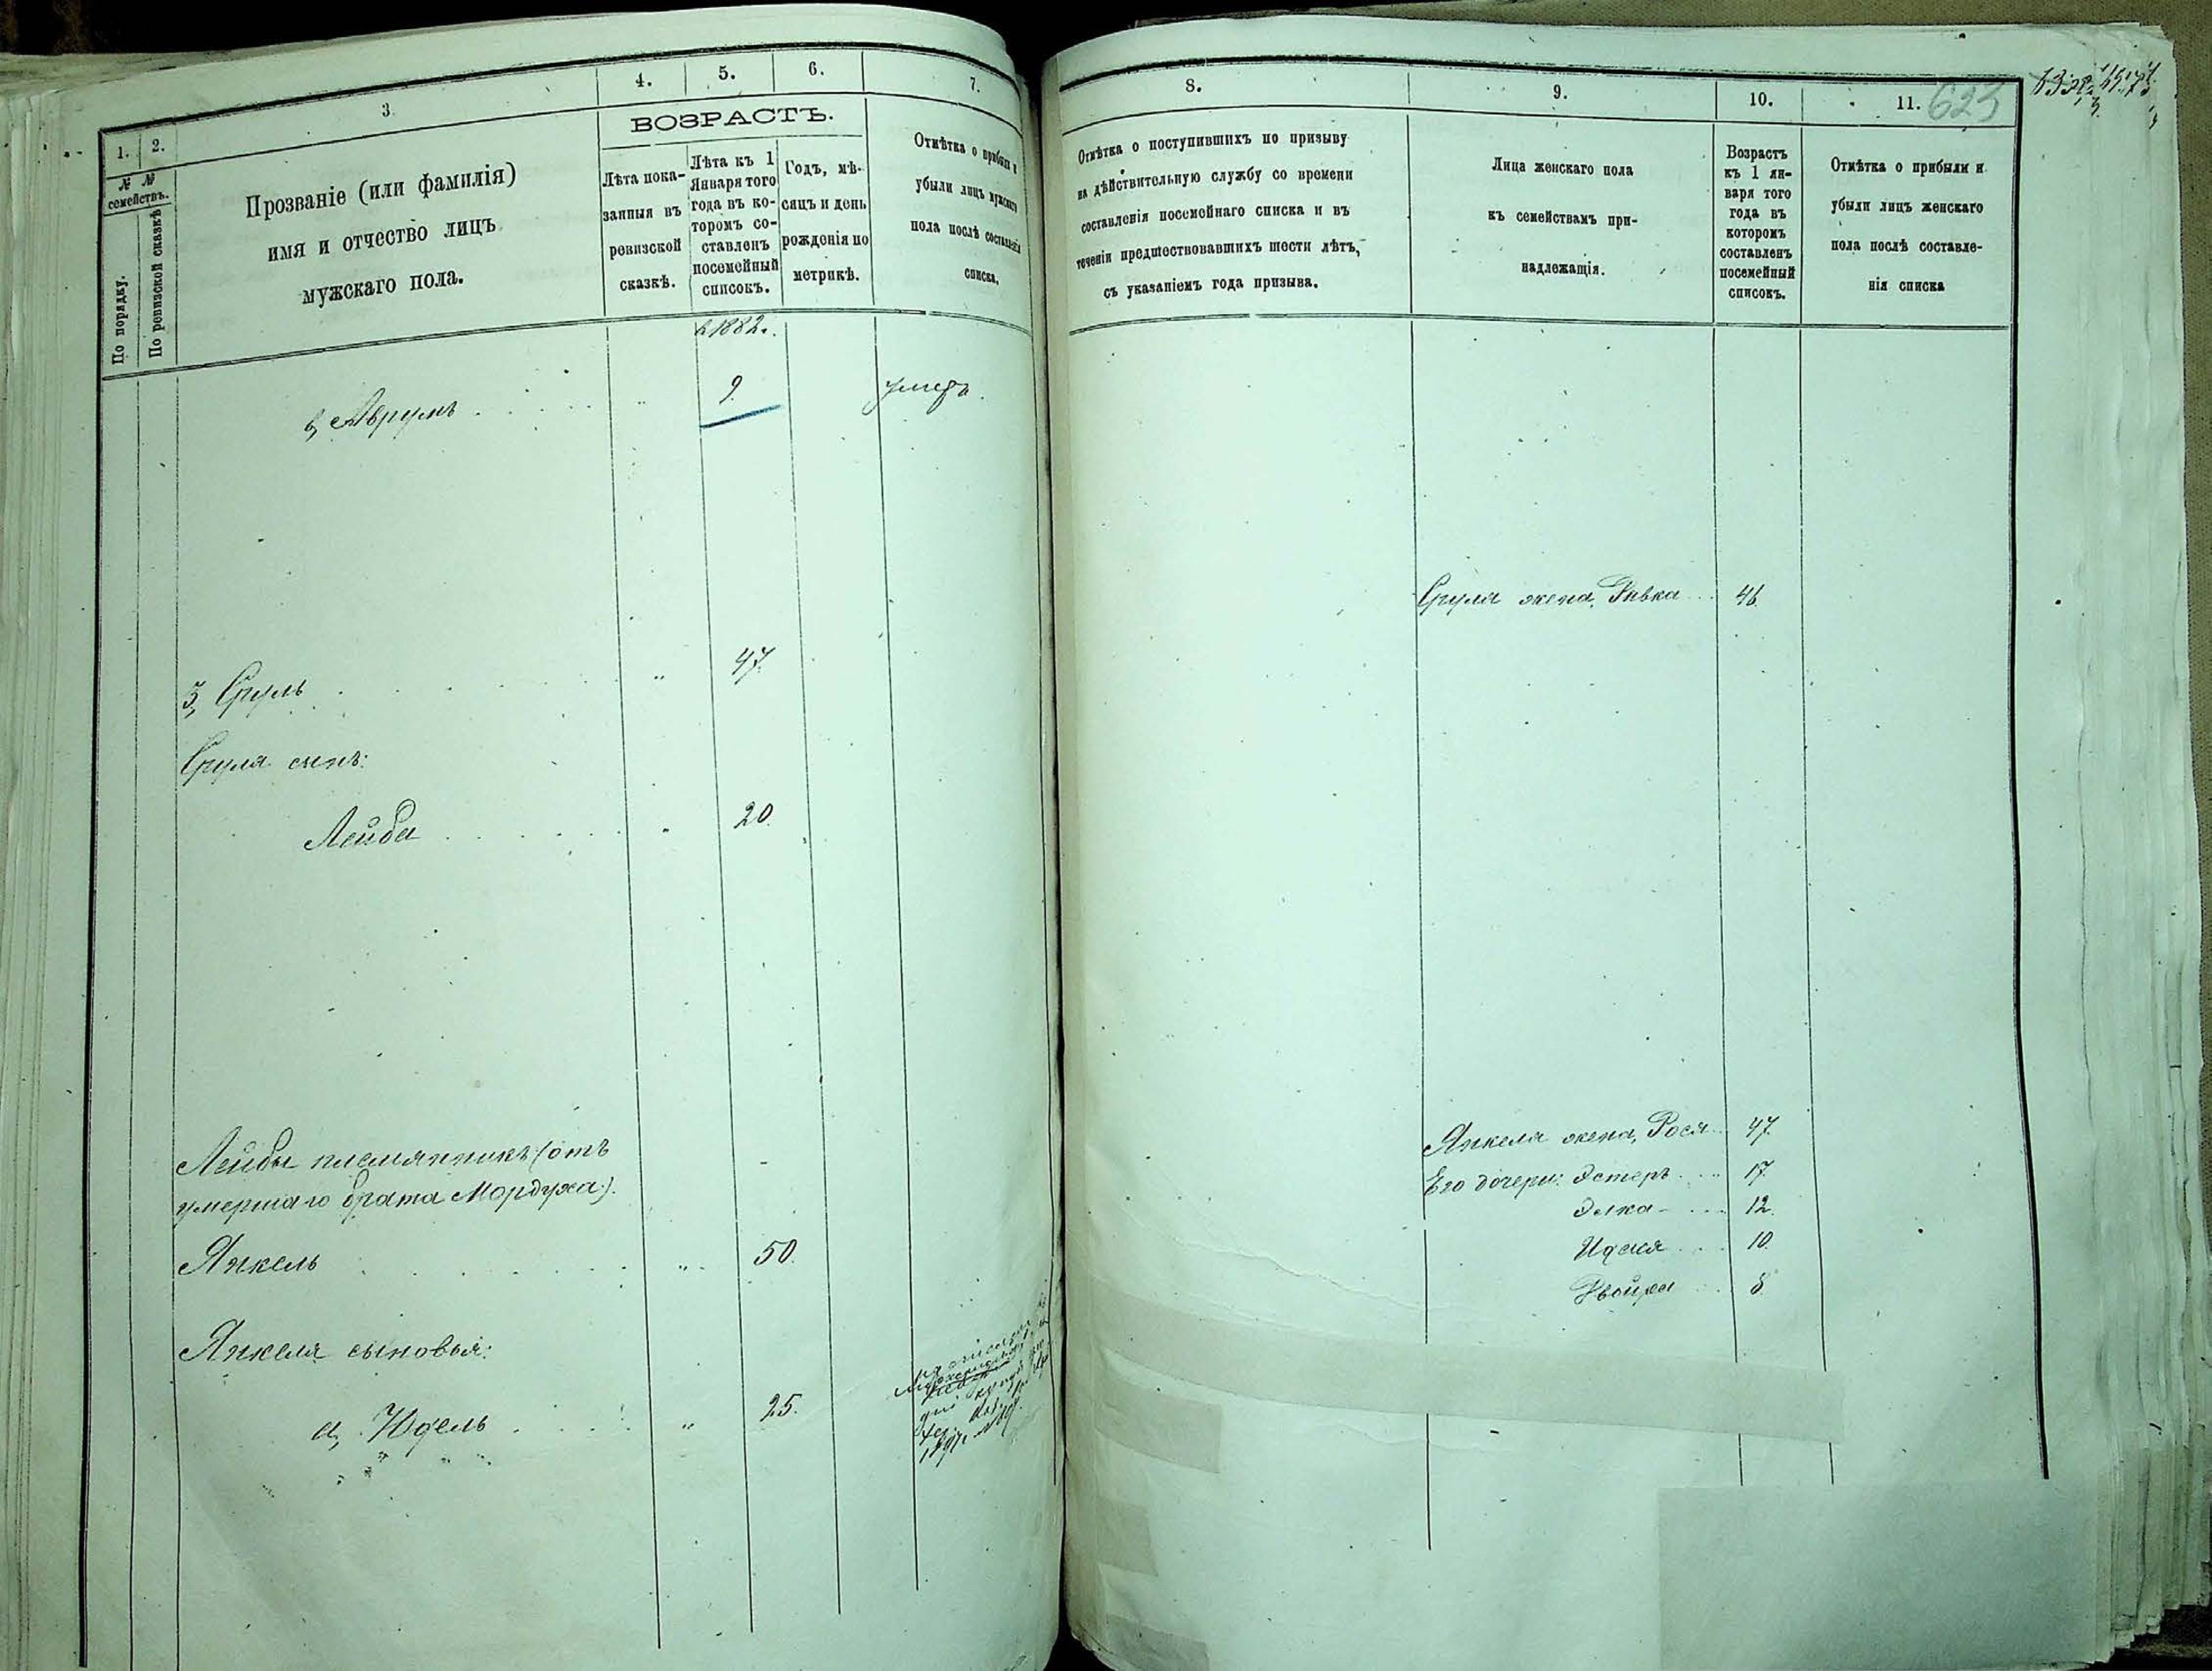 1. 2. 3. 4. 5. 6. 7.
№ №
семействъ.
По порядку.
По ревизской сказкѣ
Прозваніе (или фамилія)
имя и отчество лицъ
мужскаго пола.
ВОЗРАСТЪ.
Лѣта пока-
занныя въ
ревизской
сказкѣ.
Лѣта къ 1
Января того
года въ ко-
торомъ со-
ставленъ
посемейный
списокъ.
Годъ, мѣ-
сяцъ и день
рожденія по
метрикѣ.
Отмѣтка о прибыли и
убыли лицъ мужскаго
пола послѣ составленія
списка.
1882.
в, Аврумъ 9. умеръ.
3, Сруль 47.
Сруля сынъ:
Лейба 20.
Лейбы племянникъ (отъ
умершаго брата Мордуха).
Янкель 50.
Янкеля сыновья:
а, Юдель 25.
8. 9. 10. 11.
623
Отмѣтка о поступившихъ по призыву
на дѣйствительную службу со времени
составленія посемейнаго списка и въ
теченіи предшествовавшихъ шести лѣтъ,
съ указаніемъ года призыва.
Лица женскаго пола
къ семействамъ при-
надлежащія.
Возрастъ
къ 1 ян-
варя того
года въ
которомъ
составленъ
посемейный
списокъ.
Отмѣтка о прибыли и
убыли лицъ женскаго
пола послѣ составле-
нія списка
Сруля жена, Ривка 46.
Янкеля жена, Рося 47.
Его дочери: Эстеръ 17.
Элка 12.
Идеся 10.
Двойра 8.